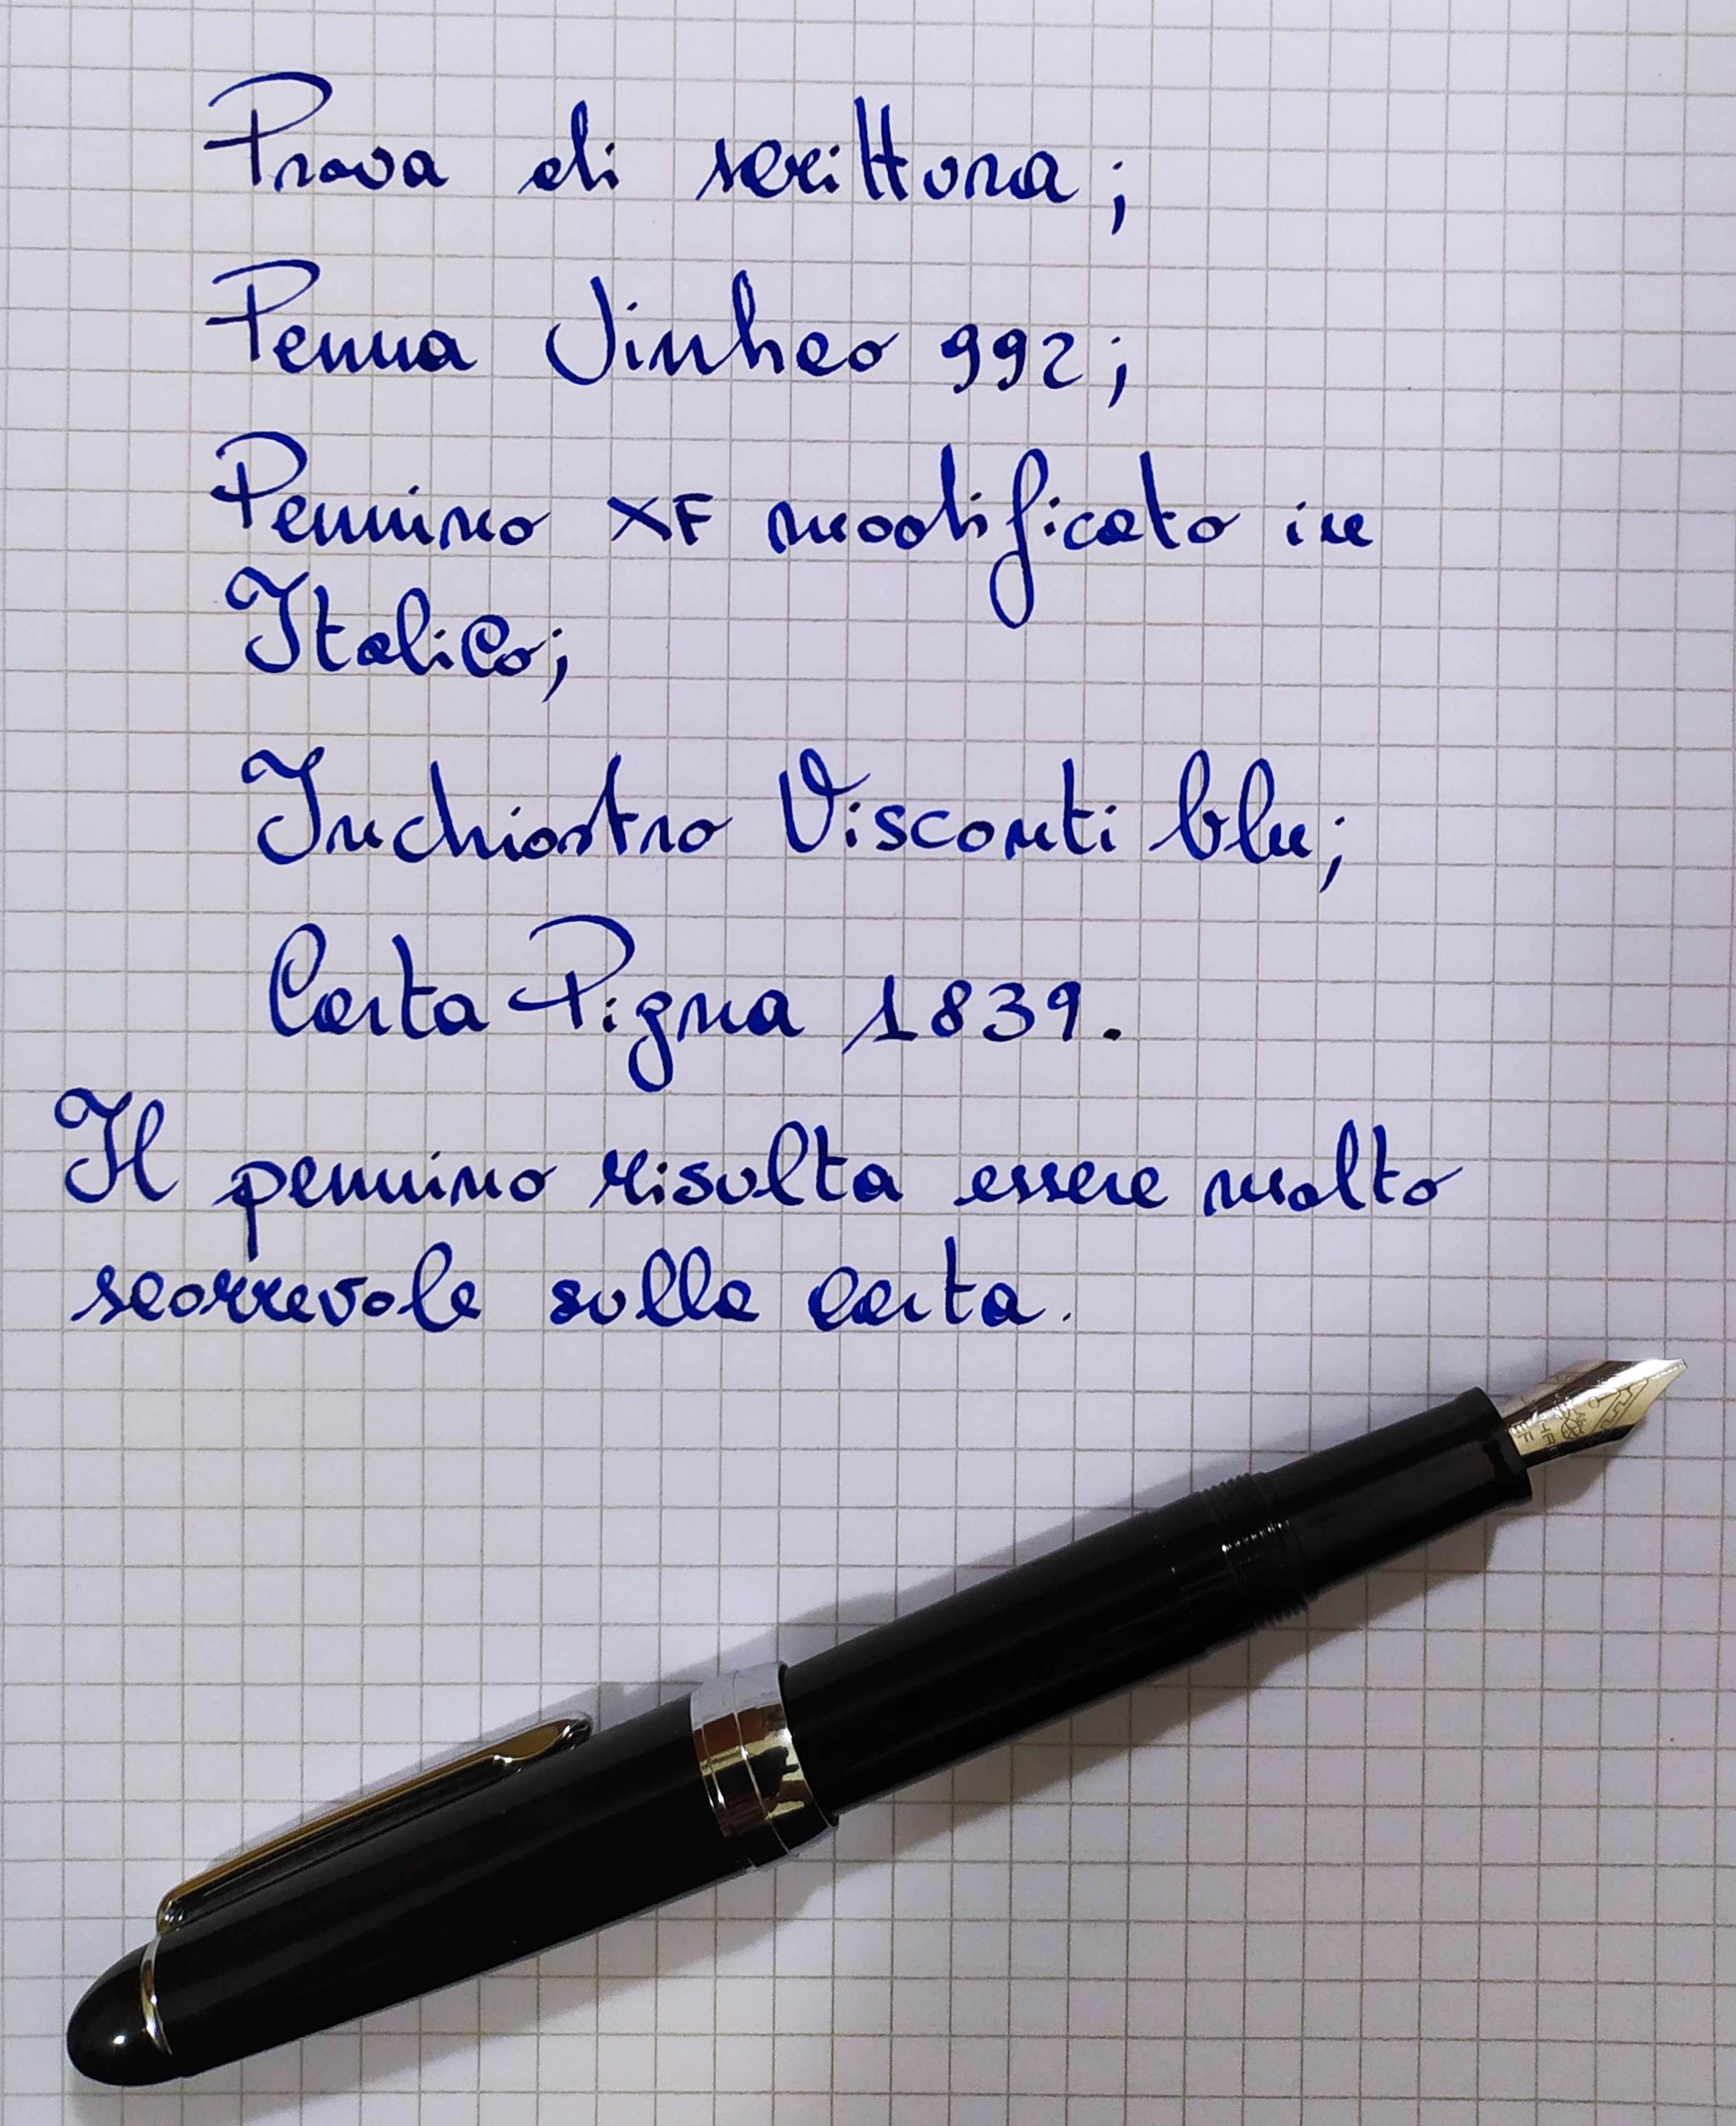 Prova di scrittura;
Penna Jinhao 992;
Pennino XF modificato in
Italico;
Inchiostro Visconti blu;
Carta Pigna 1839.
Il pennino risulta essere molto
scorrevole sulla carta.